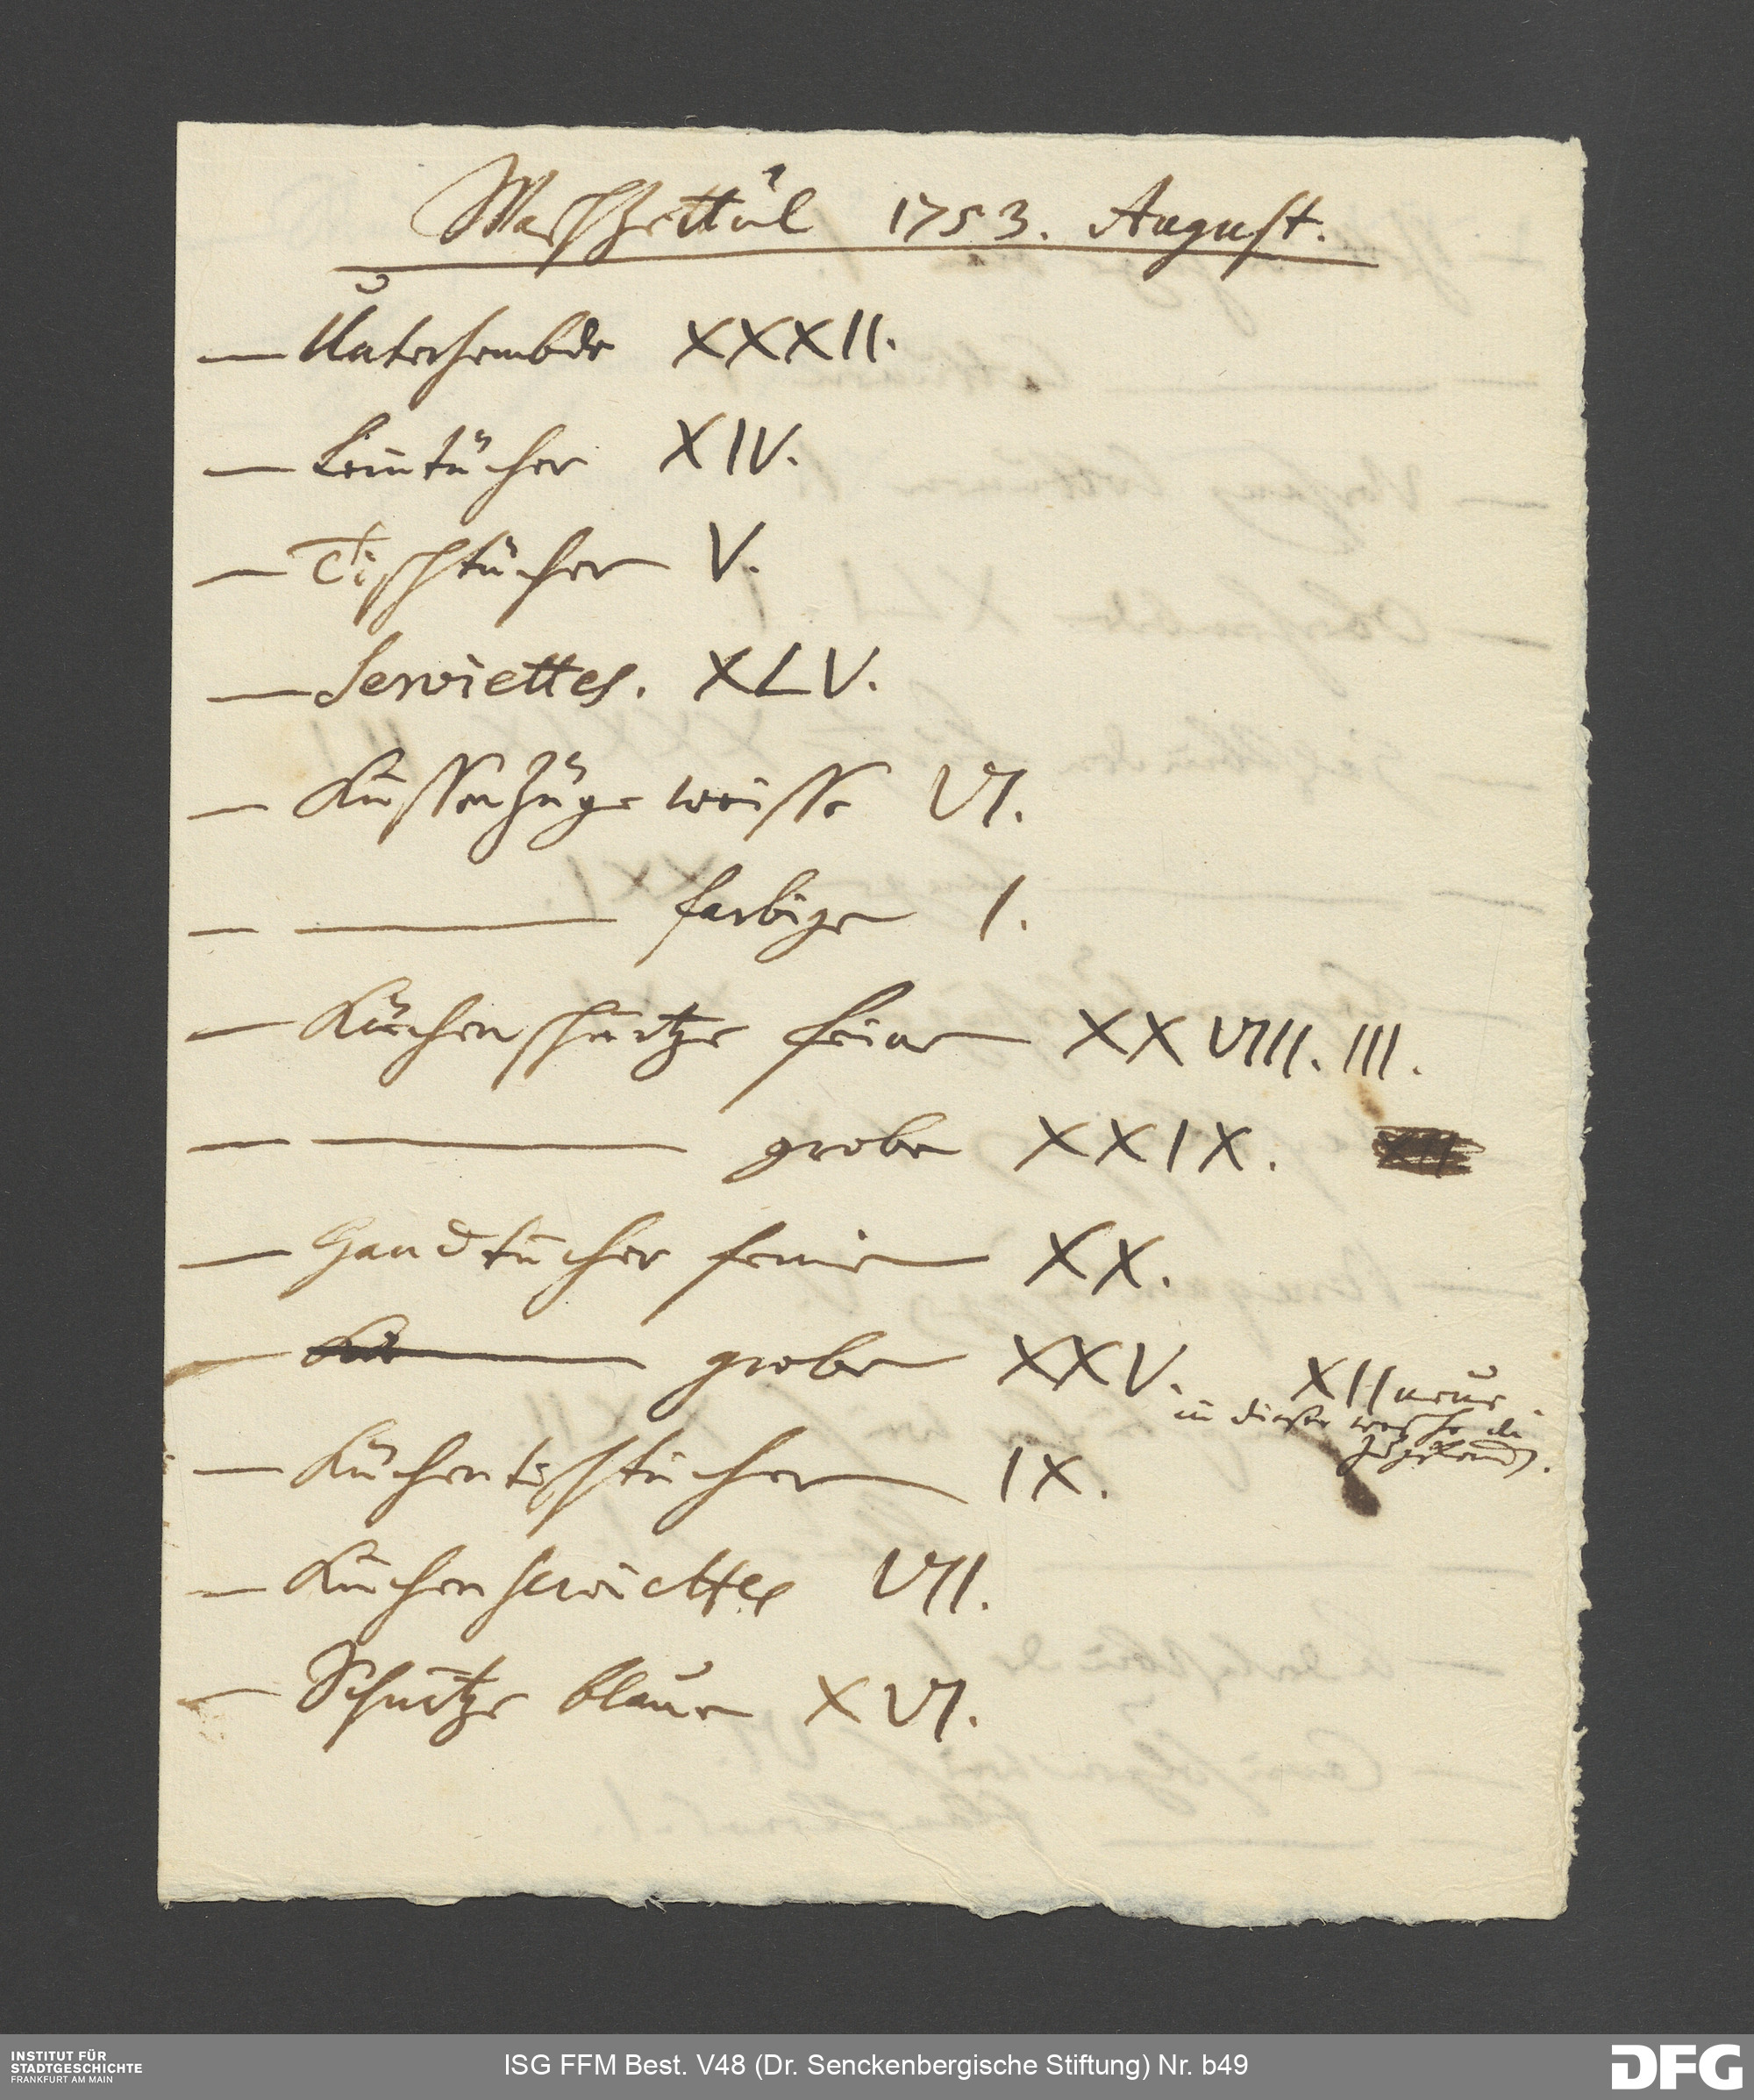 Waschzettul 1753. August.
— Unterhembde XXXII.
— Leintücher XIV.
— Tischtücher V.
— Serviettes. XLV.
— Küssenzüge weisse VI.
— ——— farbige I.
— Küchenschürtze feine XXVIII. III.
— ——— grobe XXIX.
— Handtücher feine XX.
— ——— grobe XXV. XII neue
in dieser wasche
— Küchentischtücher IX.
— Küchenserviettes VII.
— Schürtze blaue XVI.
INSTITUT FÜR
STADTGESCHICHTE
FRANKFURT AM MAIN
ISG FFM Best. V48 (Dr. Senckenbergische Stiftung) Nr. b49
DFG